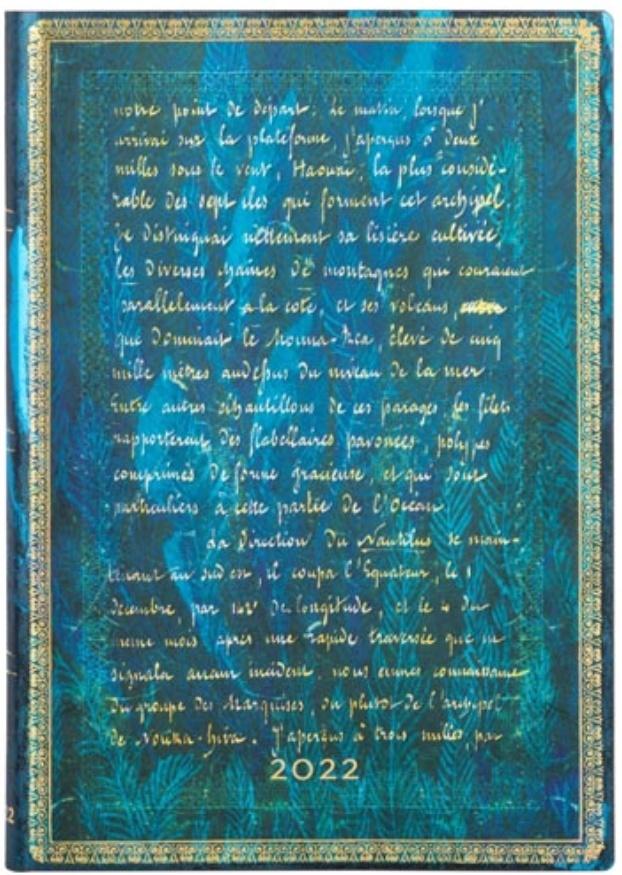 notre point de départ. Le matin, lorsque j'
arrivai sur la plateforme, j'aperçus à deux
milles sous le vent, Haouaï, la plus considé-
rable des sept iles qui forment cet archipel.
Je distinguai nettement sa lisière cultivée,
les diverses chaines de montagnes qui couraient
parallèlement a la cote, et ses volcans,
que dominait le Mouna-Rea, élevé de cinq
mille mètres au dessus du niveau de la mer.
Entre autres échantillons de ces parages, les filets
rapporterent des flabellaires pavonées, polypes
comprimés de forme gracieuse, et qui sont
particuliers à cette partie de l'Océan.
La direction du Nautilus se main-
tenant au sud est, il coupa l'Equateur, le 1
décembre, par 142° de longitude, et le 4 du
meme mois après une rapide traversée que ne
signala aucun incident, nous eumes connaissance
du groupe des Marquises, ou plutot de l'archipel
de Nouka-hiva. J'aperçus à trois milles, par
2022